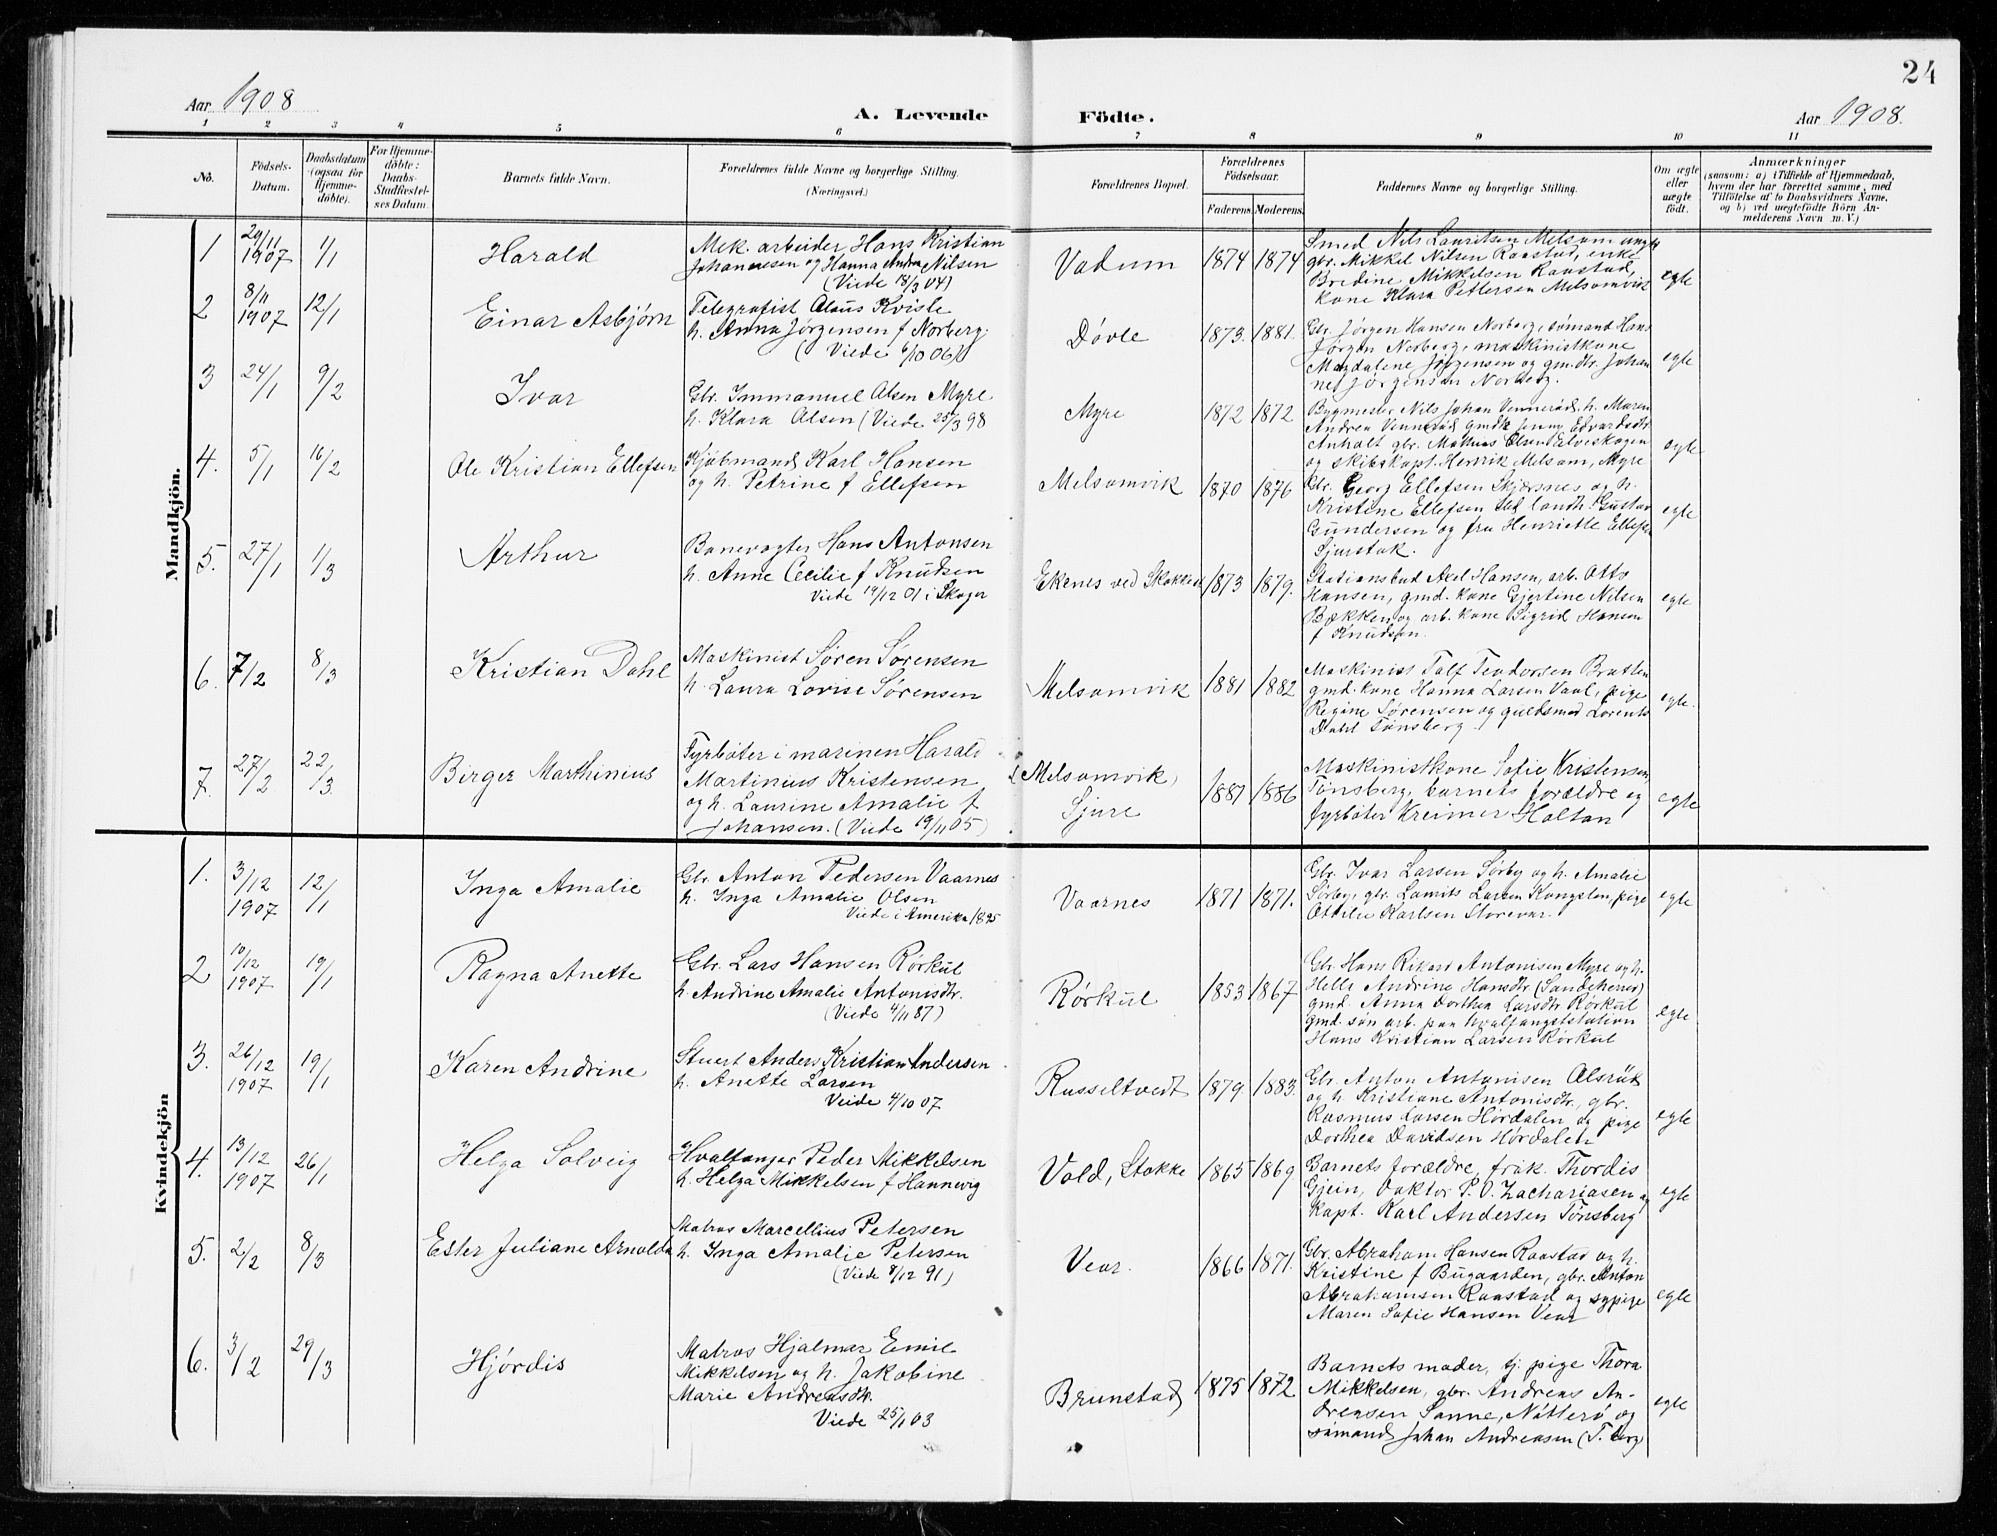 24
Aar 1908
A. Levende Födte.
Aar 1908.
1 2 3 4 5 6 7 8 9 10 11
No.
Födsels-
Datum.
Daabsdatum
(ogsaa for
Hjemme-
döbte).
For Hjemme-
döbte:
Daabs-
Stadfæstel-
ses Datum.
Barnets fulde Navn.
Forældrenes fulde Navne og borgerlige Stilling.
(Næringsvei.)
Forældrenes Bopæl.
Forældrenes
Födselsaar.
Faderens. Moderens.
Faddernes Navne og borgerlige Stilling.
Om ægte
eller
uægte
födt.
Anmærkninger
(saasom: a) i Tilfælde af Hjemmedaab,
hvem der har forrettet samme, med
Tilföielse af to Daabsvidners Navne,
og b) ved uægtefödte Börn An-
melderens Navn m. V.)
Mandkjön.
1
29/11
1907
1/1
Harald
Mek. arbeider Hans Kristian
Johannesen og Hanna Andrea Nilsen
(Viede 18/3 04)
Vadum
1874 1874
Smed Nils Lauritsen Melsom
gbr. Mikkel Nilsen Raastad, enke
Bredine Mikkelsen Raastad,
kone Klara Pettersen Melsomvik
egte
2
8/11
1907
12/1
Einar Asbjørn
Telegrafist Olaus Kvisle
h. Anna Jørgensen f Norberg.
(Viede 6/10 06)
Døvle
1873. 1881.
Gbr. Jørgen Hansen Norberg, sømand Hans
Jørgen Norberg, maskinistkone
Magdalene Jørgensen og gm.dtr. Johan
ne Jørgensen Norberg.
egte
3
24/1
9/2
Ivar
Gbr. Immanuel Olsen Myre
h. Klara Olsen (Viede 25/3 98
Myre
1872 1872
Bygmester Nils Johan Vennerød, h. Maren
Andrea Vennerød gmdk Jenny Edvardsdtr
Anholt gbr. Mathias Olsen Palveskogen
og skibskapt. Henrik Melsom, Myre
egte
4.
5/1
16/2
Ole Kristian Ellefsen
Kjøbmand Karl Hansen
og h. Petrine f Ellefsen
Melsomvik
1870 1876
Gbr. Georg Ellefsen Skjærsnes og h.
Kristine Ellefsen landh. Gustav
Gundersen og fru Henriette Ellefsen
Sjuestok.
egte
5.
27/1
1/3
Arthur
Banevogter Hans Antonsen
h. Anne Cecilie f Knudsen
Viede 19/12 01 i Skoger
Ekenes ved Stokke
1873 1879.
Stationsbud Axel Hansen, arb. Otto
Hansen, gmd. kone Gjertine Nilsen
Bækken og arb. kone Sigrid Hansen
f Knudsen.
egte
6.
7/2
8/3
Kristian Dahl
Maskinist Søren Sørensen
h. Laura Lovise Sørensen
Melsomvik
1881 1882
Maskinist Talf Teodorsen Bratten
gmd. kone Hanna Larsen Vaal, pige
Regine Sørensen og guldsmed Lorents
Dahl Tønsberg.
egte.
7.
27/2
22/3
Birger Marthinius
Fyrbøter i marinen Harald
Martinius Kristensen
og h. Laurine Amalie f
Johansen. (Viede 19/11 05)
(Melsomvik)
Sjure
1881 1886
Maskinistkone Sofie Kristensen
Tønsberg, barnets forældre og
fyrbøter Kreimer Holtan
egte
Kvindekjön
1.
3/12
1907
12/1
Inga Amalie
Gbr. Anton Pedersen Vaarnes
h. Inga Amalie Olsen
Viede i Amerika 1895
Vaarnes
1871 1871.
Gbr. Ivar Larsen Sørby og h. Amalie
Sørby, gbr. Laurits Larsen Kongsten, pige
Ottilie Karlsen Storevar.
egte
2
10/12
1907
19/1
Ragna Anette
Gbr. Lars Hansen Rørkul
h. Andrine Amalie Antonisdtr.
(Viede 4/11 87)
Rørkul
1853 1867
Gbr. Hans Rikard Antonisen Myre og h.
Helle Andrine Hansdtr. (Sandeherred)
gmd. Anna Dorthea Larsdtr Rørkul
gmd. søn arb. paa hvalfangststation
Hans Kristian Larsen Rørkul
egte
3.
26/12
1907
19/1
Karen Andrine
Stuert Anders Kristian Andersen
h. Anette Larsen
Viede 4/10 07
Russeltvedt
1879. 1883.
Gbr. Anton Antonisen Olsrød
og h. Kristiane Antonisdtr., gbr.
Rasmus Larsen Hørdalen og pige
Dorthea Davidsen Hørdalen
egte
4.
13/12
1907
26/1
Helga Solveig
Hvalfanger Peder Mikkelsen
h. Helga Mikkelsen f Hannevig
Vold, Stokke
1865 1869
Barnets forældre, frøk. Thordis
Gjein, Doktor P. O. Zachariasen og
kapt. Karl Andersen Tønsberg
egte
5.
2/2
8/3
Ester Juliane Arnolda
Matros Marcellius Petersen
h. Inga Amalie Petersen
(Viede 8/12 91)
Vear.
1866 1871.
Gbr. Abraham Hansen Raastad og h.
Kristine f Bugaarden, gbr. Anton
Abrahamsen Raastad og sypige
Maren Sofie Hansen Vear
egte
6.
3/2
29/3
Hjørdis
Matros Hjalmar Emil
Mikkelsen og h. Jakobine
Marie Andreasdtr.
Viede 25/1 03
Brunstad
1875 1872
Barnets moder, tj. pige Thora
Mikkelsen, gbr. Andreas An-
dreasen Sanne, Nøtterø og
sømand Johan Andreasen (T. berg)
egte